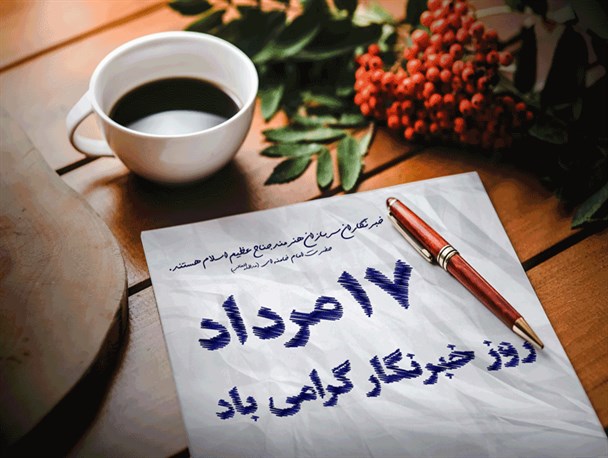 خبرنگاران سربازان هنرمند جناح عظیم اسلام هستند.
حضرت امام خامنه ای
۱۷ مرداد
روز خبرنگار گرامی باد